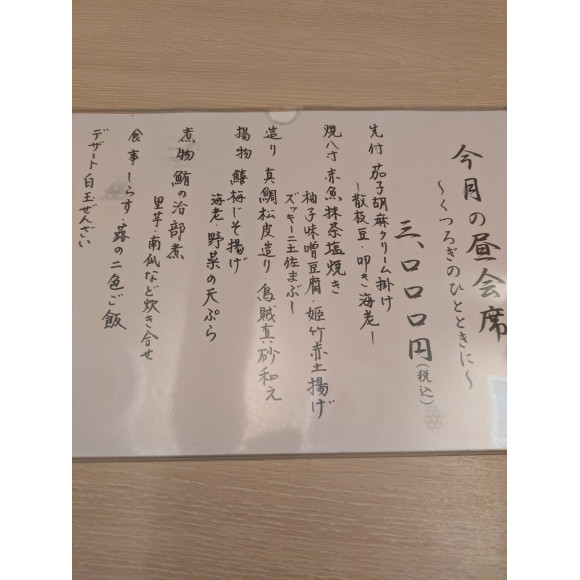 今月の昼会席
～くつろぎのひとときに～
三、〇〇〇円(税込)
先付 茄子胡麻クリーム掛け
ー散枝豆・叩き海老ー
焼八寸 赤魚抹茶塩焼き
柚子味噌豆腐・姫竹赤土揚げ
ズッキーニ土佐まぶし
造り 真鯛松皮造り 烏賊真砂和え
揚物 鱚梅じそ揚げ
海老・野菜の天ぷら
煮物 鮪の治部煮
里芋・南瓜など炊き合せ
食事 しらす・蕗の二色ご飯
デザート 白玉ぜんざい